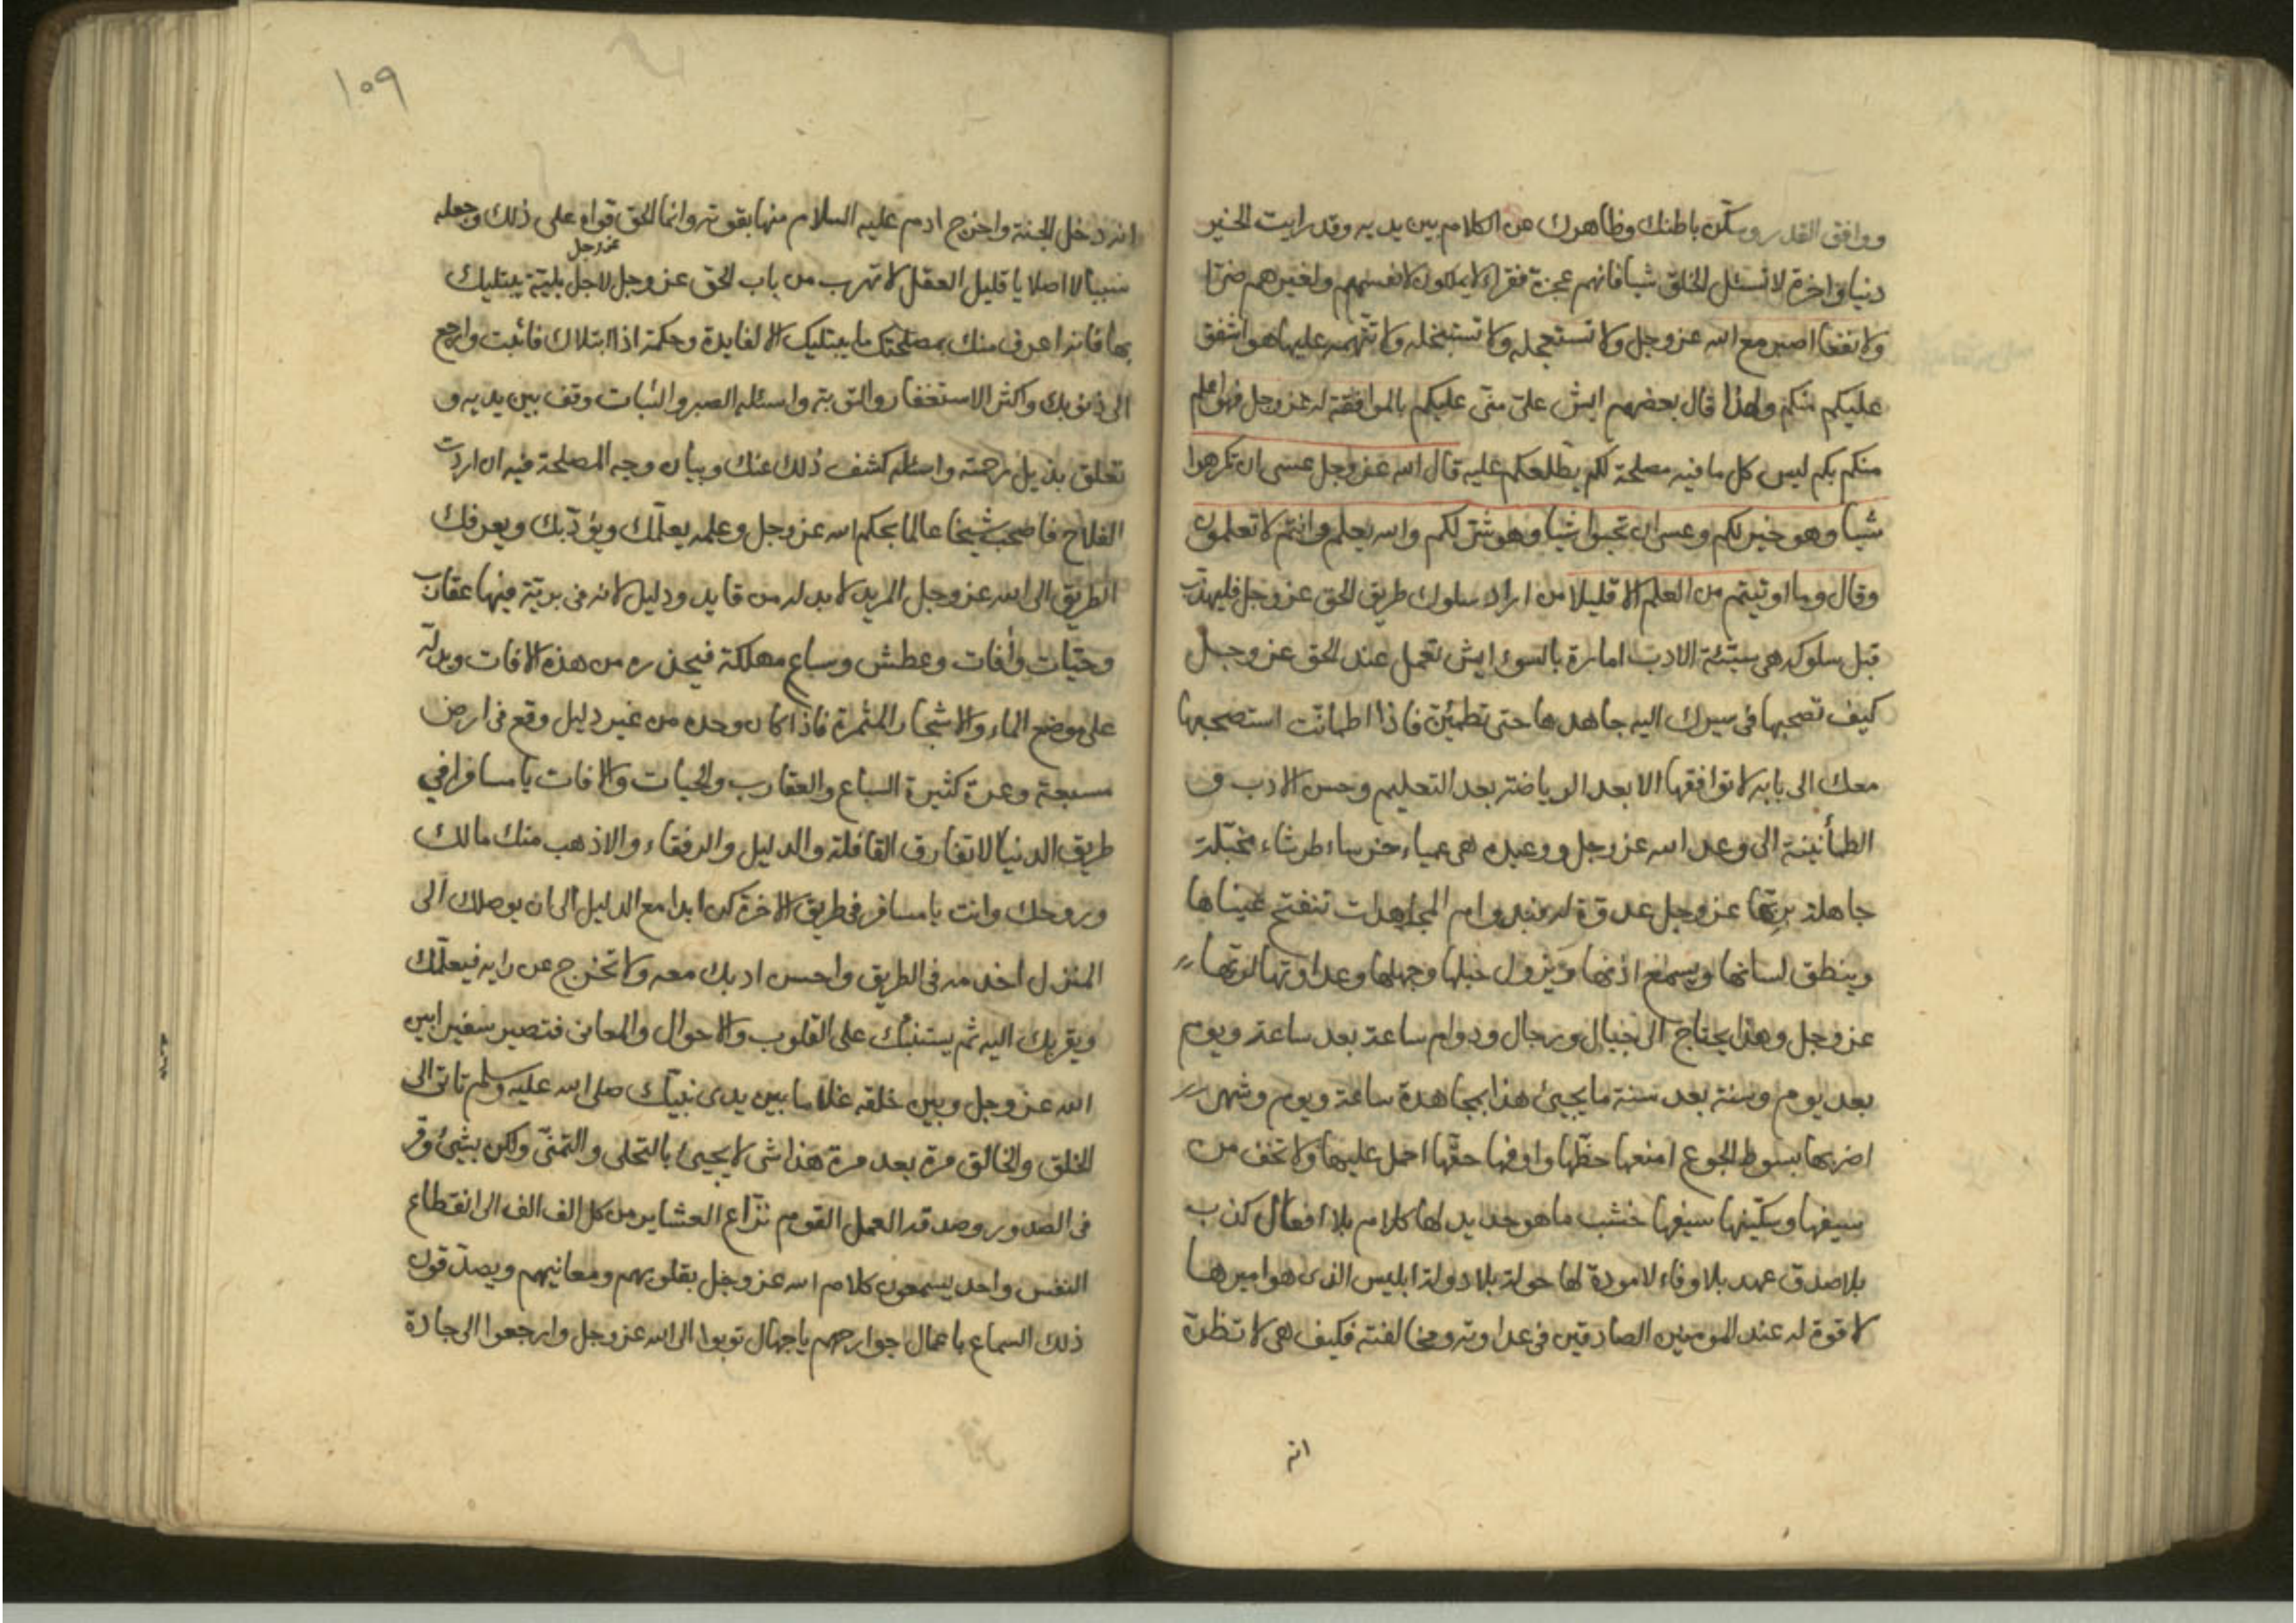 ووافق القدر وسكّن باطنك وظاهرك عن الكلام بين يديه وقد رايت الخير
دنيا واخرة لا تسئل الخلق شيا فانهم عجزة فقراء لا يملكون لانفسهم ولغيرهم ضرّا
ولا نفعا اصبر مع الله عز وجل ولا تستعجله ولا تستبخله ولا تتّهمه عليها هو اشفق
عليكم منكم ولهذا قال بعضهم ايش علىّ منّى عليكم بالموافقة له عز وجل فهو اعلم
منكم بكم ليس كل ما فيه مصلحة لكم يطّلعكم عليه قال الله عز وجل عسى ان تكرهوا
شيا وهو خير لكم وعسى ان تحبوا شيا وهو شرّ لكم والله يعلم وانتم لا تعلمون
وقال وما اوتيتم من العلم الا قليلا من اراد سلوك طريق الحق عز وجل فليهذّب
قبل سلوكه هى سيّئة الادب امارة بالسوء ايش تعمل عند الحق عز وجل
كيف تصحبها فى سيرك اليه جاهدها حتى تطمئنّ فاذا اطمانّت استصحبها
معك الى بابه لا توافقها الا بعد الرياضة بعد التعليم وحسن الادب و
الطمأنينة الى وعد الله عز وجل ووعيده هى عمياء خرساء طرشاء مخبّلة
جاهلة بربّها عز وجل عدوّة له فبدوام المجاهدات تنفتح عيناها
وينطق لسانها ويسمع اذنها ويزول خبلها وجهلها وعداوتها لربّها
عز وجل وهذا يحتاج الى حبال ورجال ودوام ساعة بعد ساعة ويوم
بعد يوم وسنة بعد سنة ما يجيئ هذا بمجاهدة ساعة ويوم وشهر
اضربها بسوط الجوع امنعها حظّها واوفها حقّها احمل عليها ولا تخف من
سيفها وسكّينها سيفها خشب ما هو حديد لها كلام بلا افعال كذب
بلا صدق عهد بلا وفاء لا مودة لها جولة بلا دولة ابليس الذى هو اميرها
لا قوة له عند المومنين الصادقين فى عداوته ومخالفته فكيف هى لا تظنّ
انه
١٠٩
انه دخل الجنة واخرج ادم عليه السلام منها بقوته وانما الحق قواه على ذلك وجعله
عز وجل
سببا لا اصلا يا قليل العقل لا تهرب من باب الحق عز وجل لاجل بليّة يبتليك
بها فانه اعرف منك بمصلحتك ما يبتليك الا لفايدة وحكمة اذا ابتلاك فاثبت وارجع
الى ذنوبك واكثر الاستغفار والتوبة واسئله الصبر والثبات وقف بين يديه و
تعلق بذيل رحمته واسئله كشف ذلك عنك وبيان وجه المصلحة فيه ان اردت
الفلاح فاصحب شيخا عالما بحكم الله عز وجل وعلمه يعلّمك ويؤدّبك ويعرفك
الطريق الى الله عز وجل المريد لا بد له من قايد ودليل لانه فى بريّة فيها عقارب
وحيّات وآفات وعطش وسباع مهلكة فيحذره من هذه الافات ويدلّه
على موضع الماء والاشجار المثمرة فاذا كان وحده من غير دليل وقع فى ارض
مسبعة وعرة كثيرة السباع والعقارب والحيات والافات يا مسافرا في
طريق الدنيا لا تفارق القافلة والدليل والرفقاء والا ذهب منك مالك
وروحك وانت يا مسافر فى طريق الاخرة كن ابدا مع الدليل الى ان يوصلك الى
المنزل اخدمه فى الطريق واحسن ادبك معه ولا تخرج عن رايه فيعلّمك
ويقربك اليه ثم يستنبك على القلوب والاحوال والمعانى فتصير سفيرا بين
الله عز وجل وبين خلقه غلاما بين يدى نبيّك صلى الله عليه وسلم تاتى الى
الخلق والخالق مرة بعد مرة هذا شى لا يجيئ بالتحلى والتمنّى ولكن بشيئ وقر
فى الصدور وصدقه العمل القوم نزّاع العشاير من كل الف الف الى انقطاع
النفس واحد يسمعون كلام الله عز وجل بقلوبهم ومعانيهم ويصدّقون
ذلك السماع باعمال جوارحهم يا جهال توبوا الى الله عز وجل وارجعوا الى جادة